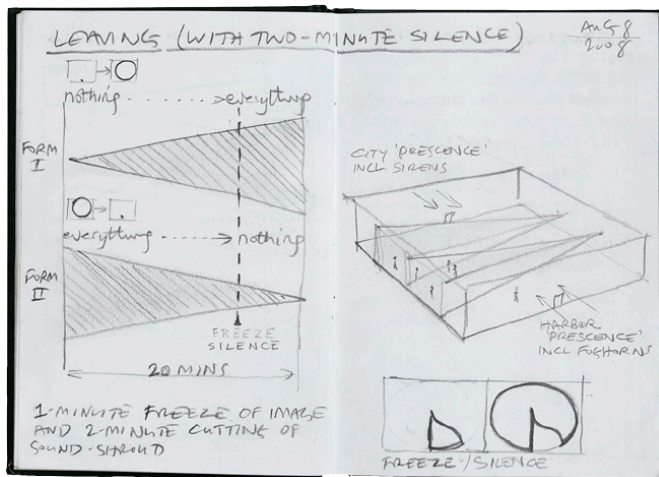 LEAVING (WITH TWO-MINUTE SILENCE)
AUG 8
2008
nothing everything
FORM
I
everything nothing
FORM
II
FREEZE
SILENCE
20 MINS
1-MINUTE FREEZE OF IMAGE
AND 2-MINUTE CUTTING OF
SOUND-SHROUD
CITY 'PRESCENCE'
INCL SIRENS
HARBOR
'PRESCENCE'
INCL FOGHORNS
FREEZE/SILENCE